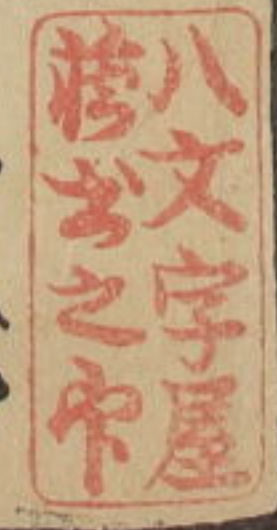 八文字屋
蔵書之印